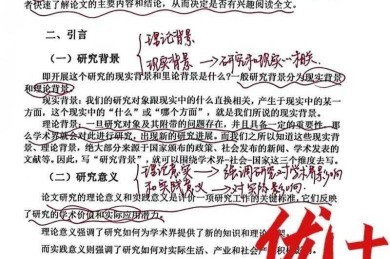 者快速了解论文的主要内容和结论，从而决定是否有兴趣阅读全文。
二、引言
理论背景
（一）研究背景
现实背景→研究和现实一方相关
即开展这个研究的现实背景和理论背景是什么？一般研究背景分为现实背景
和理论背景。
现实背景：我们的研究对象跟现实中的什么直接相关，产生于现实中的某一
个方面，这个中的“什么”或“哪个方面”，就是我们所说的现实背景。
理论背景：一旦研究对象及其附带的问题存在，并且具备一定的重要性，那
么学术界就会对此进行研究，出现新的研究进展，而我们之所以知道这些现实背
景、理论背景，绝大部分来源于国家颁布的政策、社会发布的新闻、学术发表的
文献等。因此，写“研究背景”，就可以围绕学术界-社会-国家这三个维度去写。
（二）研究意义
理论意义→强调研究对学术界影响
和实践意义→对实际影响
论文研究的理论意义和实践意义是评价一项研究工作的关键标准，它们反映
了研究的学术价值和实际应用潜力。
理论意义强调了研究如何为学术界提供了新的知识和理论
而实践意义则强调了研究如何对实际生活、产业和社会产生积极
优士